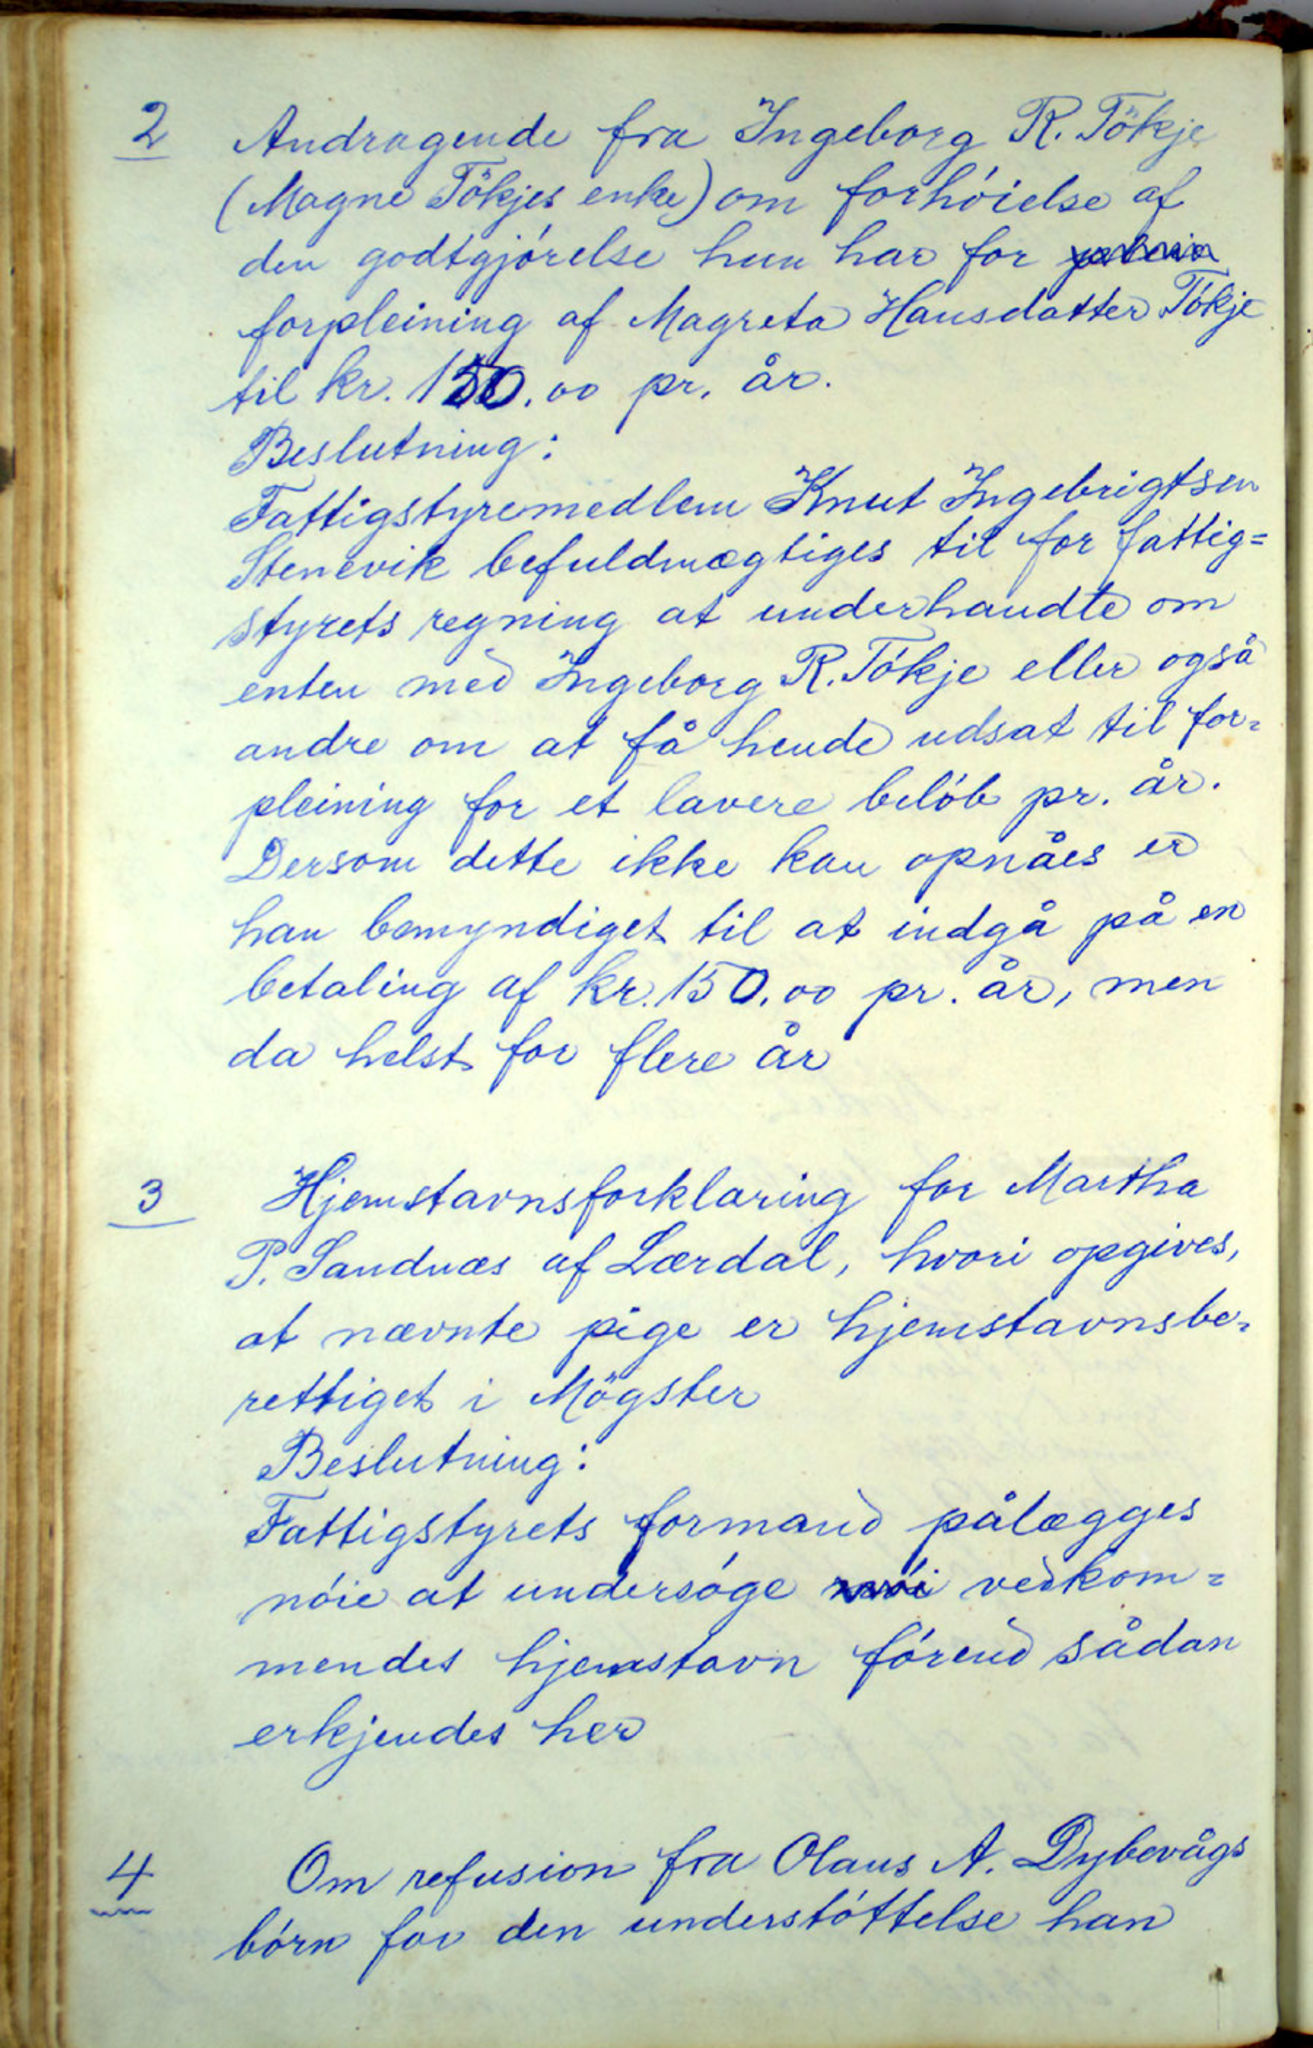 2 Andragende fra Ingeborg R. Tökje
(Magne Tökjes enke) om forhóielse af
den godtgjórelse hun har for
forpleining af Magreta Hansdatter Tókje
til kr. 150.00 pr. år.
Beslutning:
Fattigstyremedlem Knut Ingebrigtsen
Stenevik befuldmægtiges til for fattig=
styrets regning at underhandle om
enten med Ingeborg R. Tókje eller også
andre om at få hende udsat til for=
pleining for et lavere belób pr. år.
Dersom dette ikke kan opnåes er
han bemyndiget til at indgå på en
betaling af kr. 150.00 pr. år, men
da helst for flere år
3 Hjemstavnsforklaring for Martha
P. Sandnæs af Lærdal, hvori opgives,
at nævnte pige er hjemstavnsbe=
rettiget i Mögster
Beslutning:
Fattigstyrets formand pålægges
nóie at undersóge vedkom=
mendes hjemstavn fórend sådan
erkjendes her
4 Om refusion fra Olaus A. Dybevågs
bórn for den understóttelse han